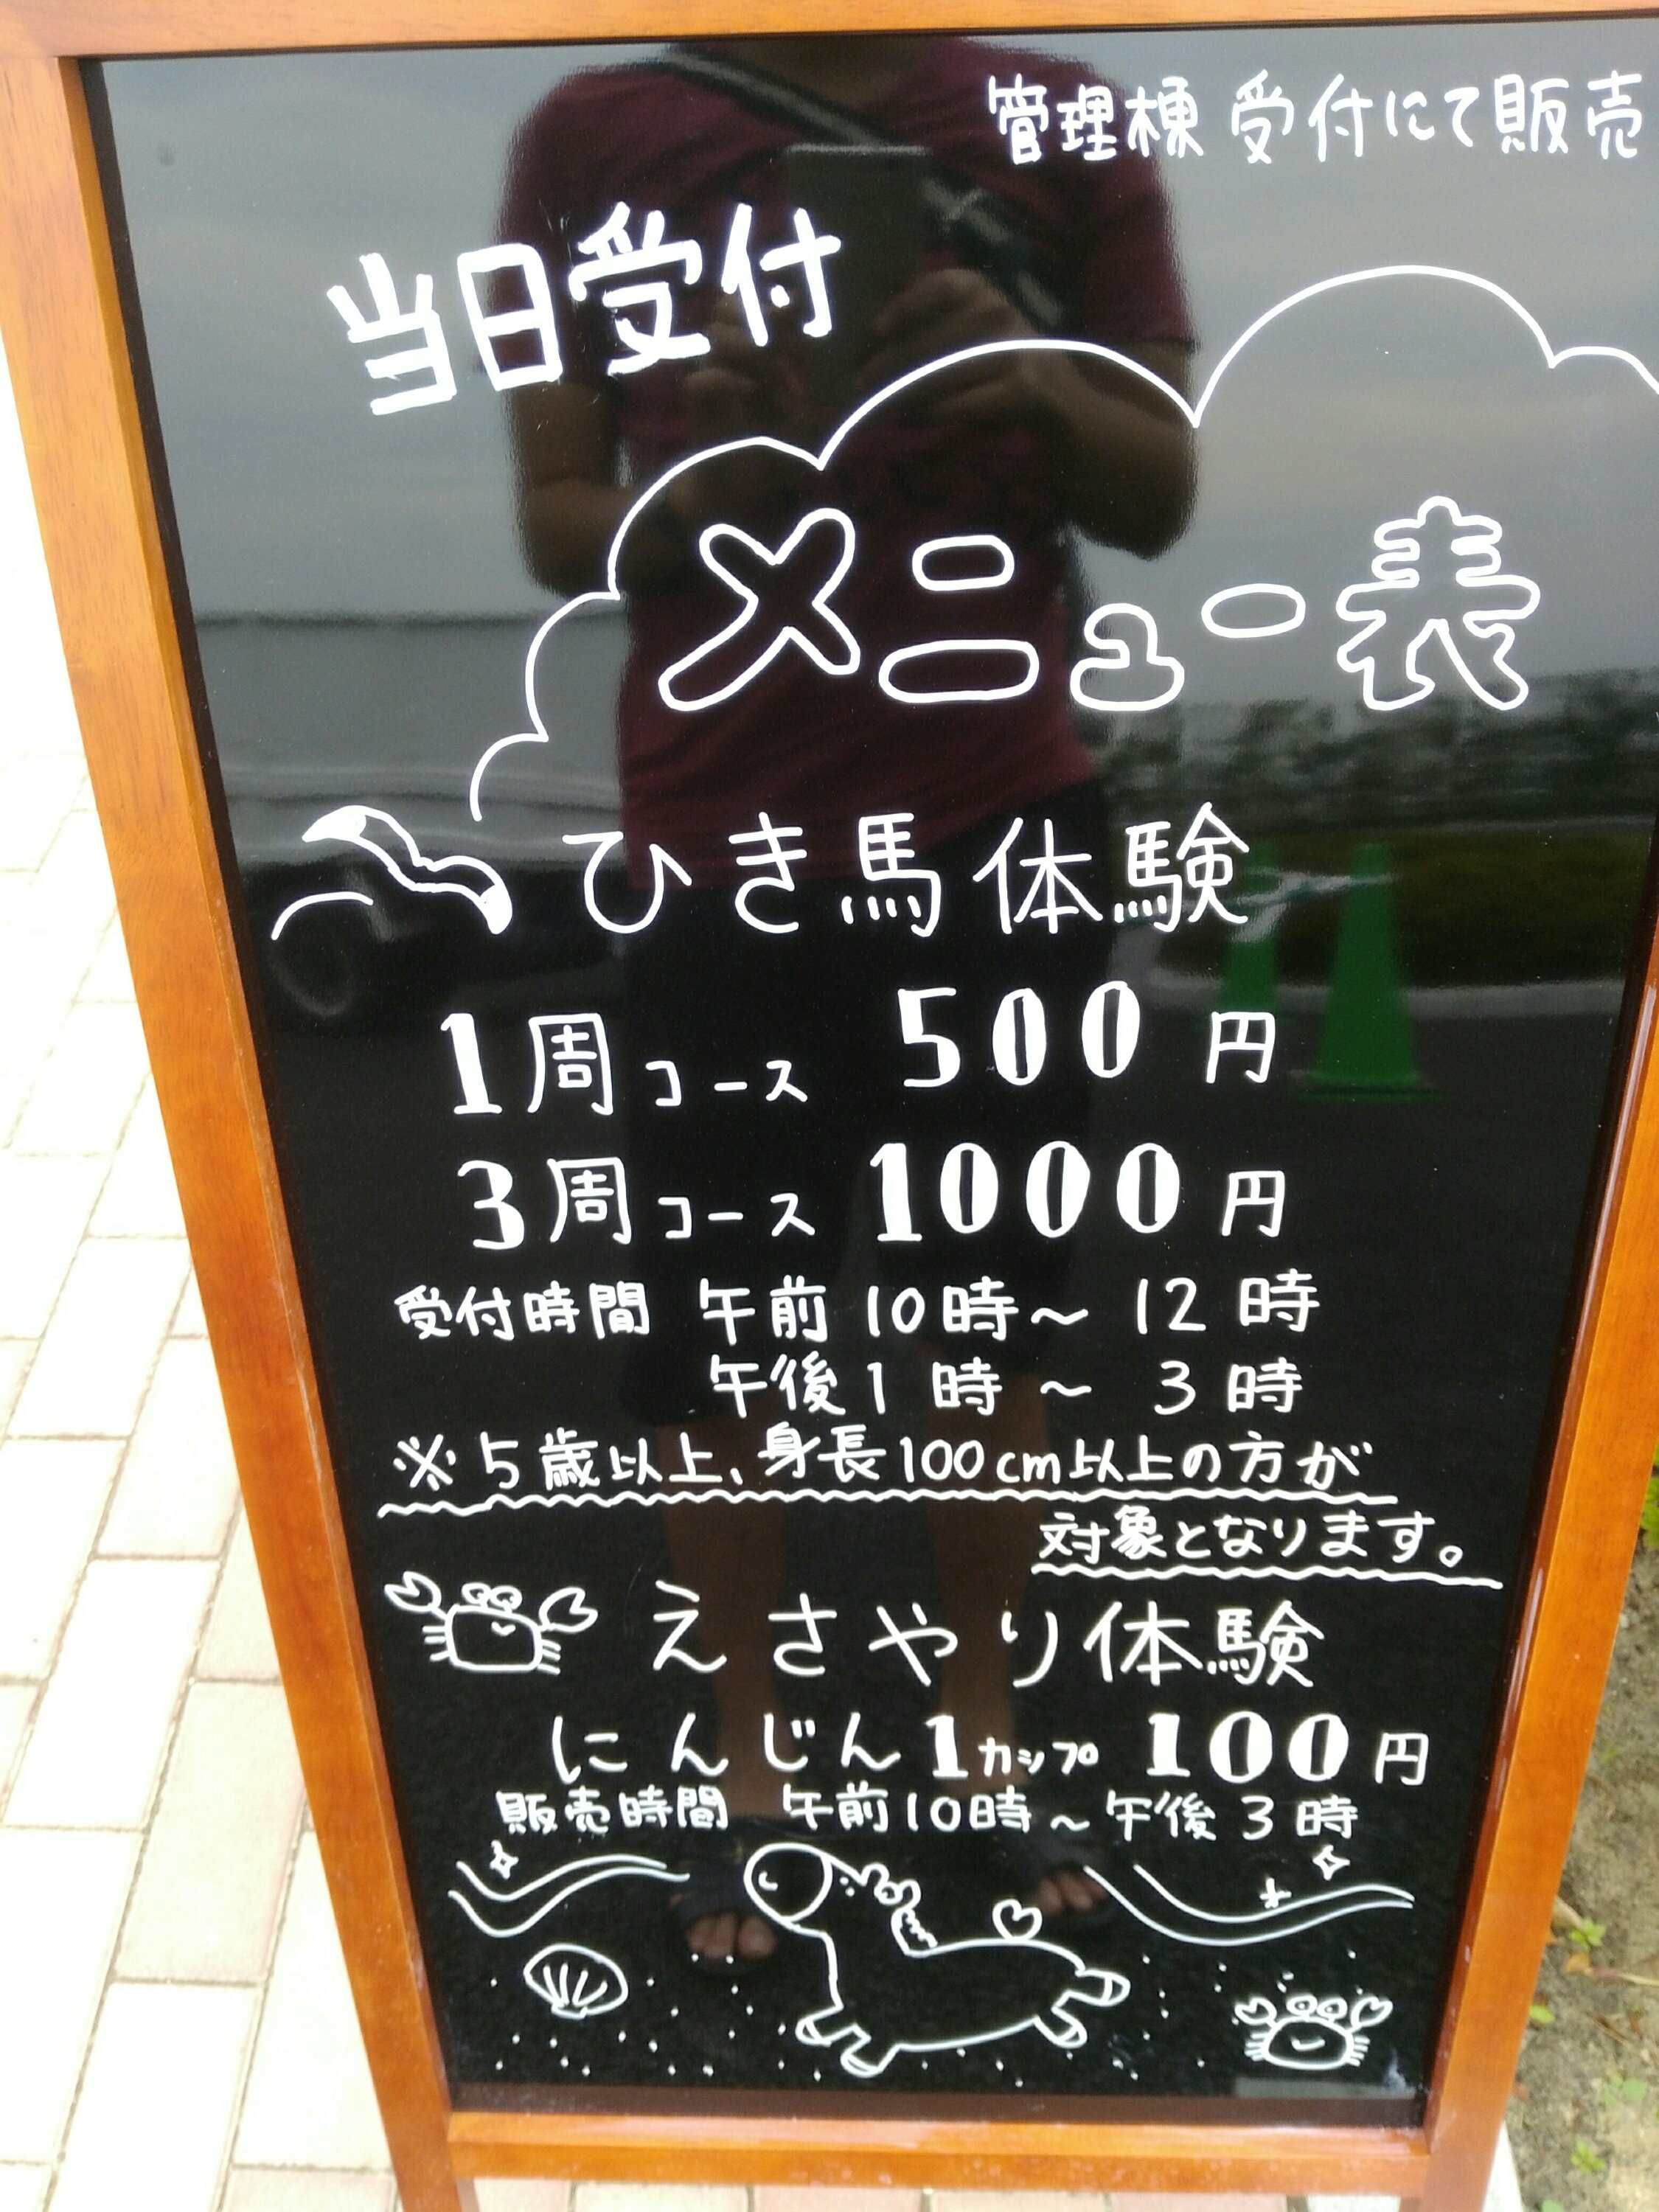 管理棟 受付にて販売
当日受付
メニュー表
ひき馬体験
1周コース 500円
3周コース 1000円
受付時間 午前10時～12時
午後1時～3時
※5歳以上、身長100cm以上の方が
対象となります。
えさやり体験
にんじん1カップ 100円
販売時間 午前10時～午後3時